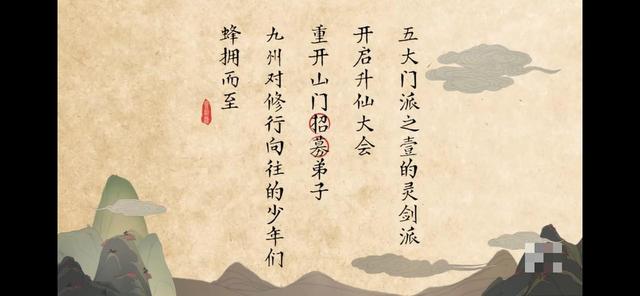 五大门派之壹的灵剑派
开启升仙大会
重开山门招慕弟子
九州对修行向往的少年们
蜂拥而至